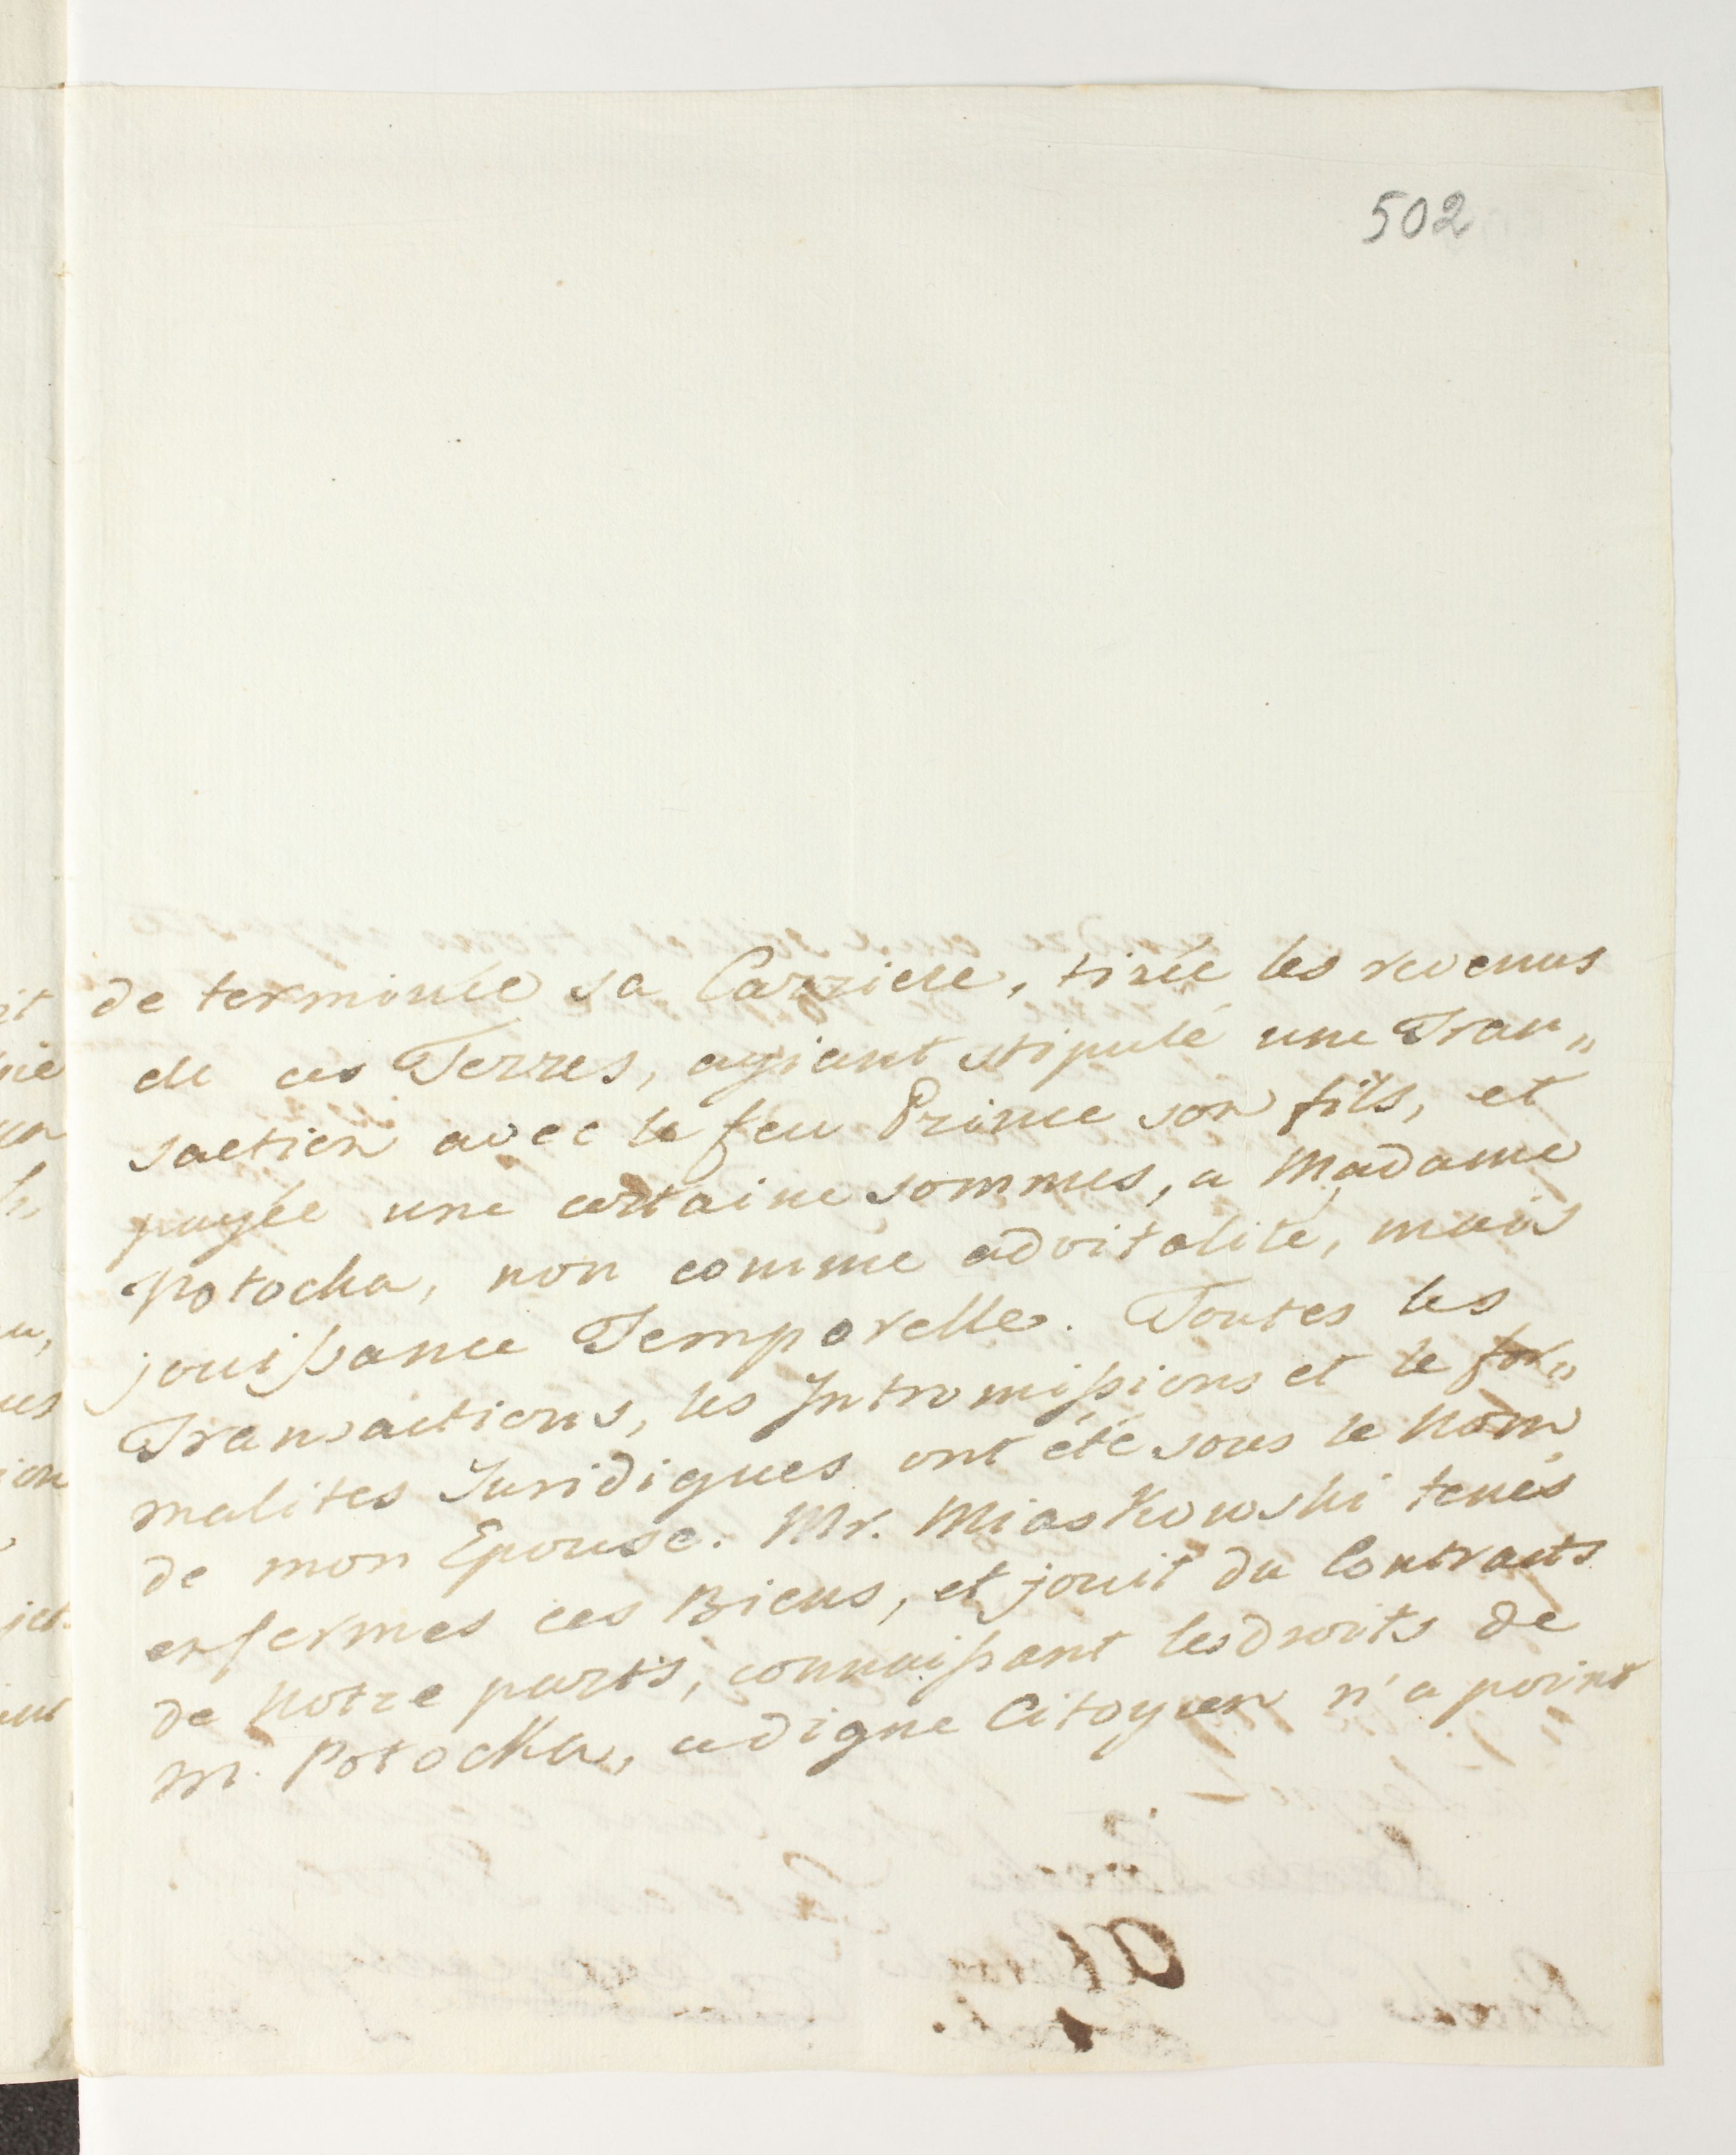 502
de terminée sa Carriere, tirée les revenus
de ces Terres, agiant stipulé une Tran„
saction avec le feu Prince son fils, et
payée une certaine sommes, a Madame
Potocka, non comme advitalité, mais
jouissance Temporelle. Toutes les
Transactions, les Intromissions et le for„
malites Juridiques ont été sous le Nom
de mon Epouse. Mr. Miaskowski tenés
enfermes ces Biens, et jouit du Contracts
de Notre parts, connaissant les droits de
M. Potocka, ce digne Citoyen n'a point